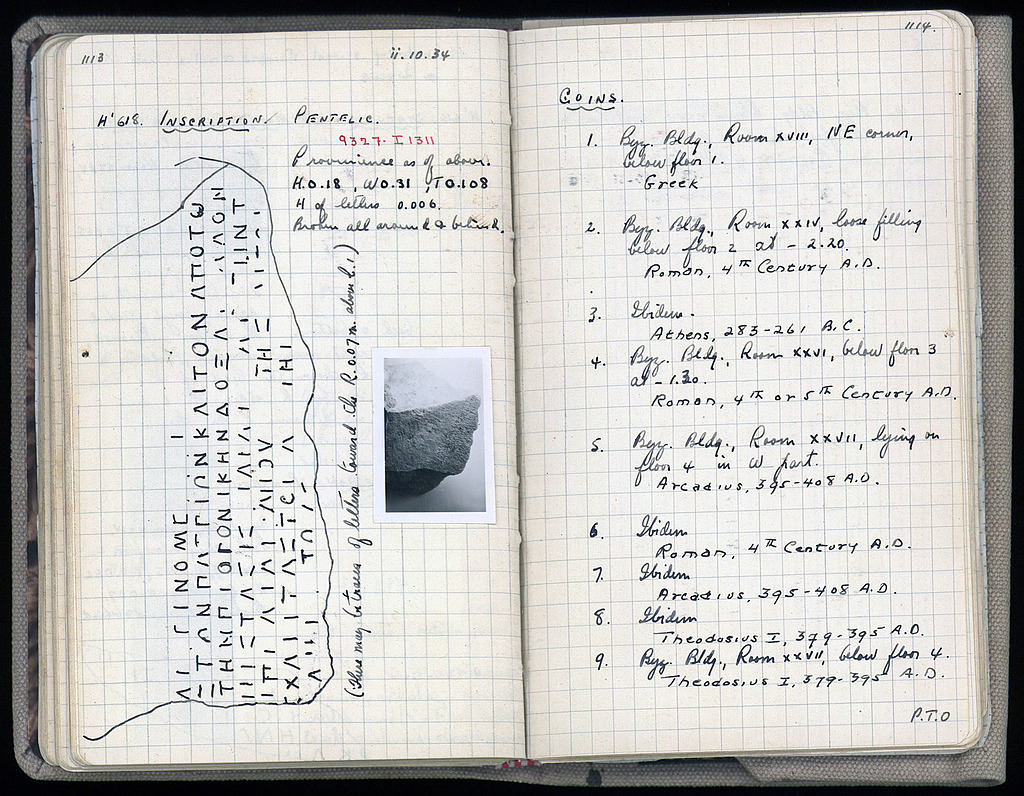 1113
ii.10.34
H'618. INSCRIPTION. PENTELIC.
9327-I 1311
Provenience as of above.
H.0.18, W0.31, T0.108
H of letters 0.006.
Broken all around & behind.
ΓΙΝΟΜΕ
ΤΩΝ ΚΑΙ ΤΟΝ ΑΠΟ ΤΩ
(There may be traces of letters toward the R. 0.07m. above l.1)
1114.
COINS.
1. Byz. Bldg., Room XVIII, NE corner,
below floor 1.
Greek
2. Byz. Bldg., Room XXIV, loose filling
below floor 2 at - 2.20.
Roman, 4TH Century A.D.
3. Ibidem.
Athens, 283-261 B.C.
4. Byz. Bldg., Room XXVI, below floor 3
at - 1.30.
Roman, 4TH or 5TH Century A.D.
5. Byz. Bldg., Room XXVII, lying on
floor 4 in W part.
Arcadius, 395-408 A.D.
6. Ibidem
Roman, 4TH Century A.D.
7. Ibidem
Arcadius, 395-408 A.D.
8. Ibidem
Theodosius I, 379-395 A.D.
9. Byz. Bldg., Room XXVII, below floor 4.
Theodosius I, 379-395 A.D.
P.T.O